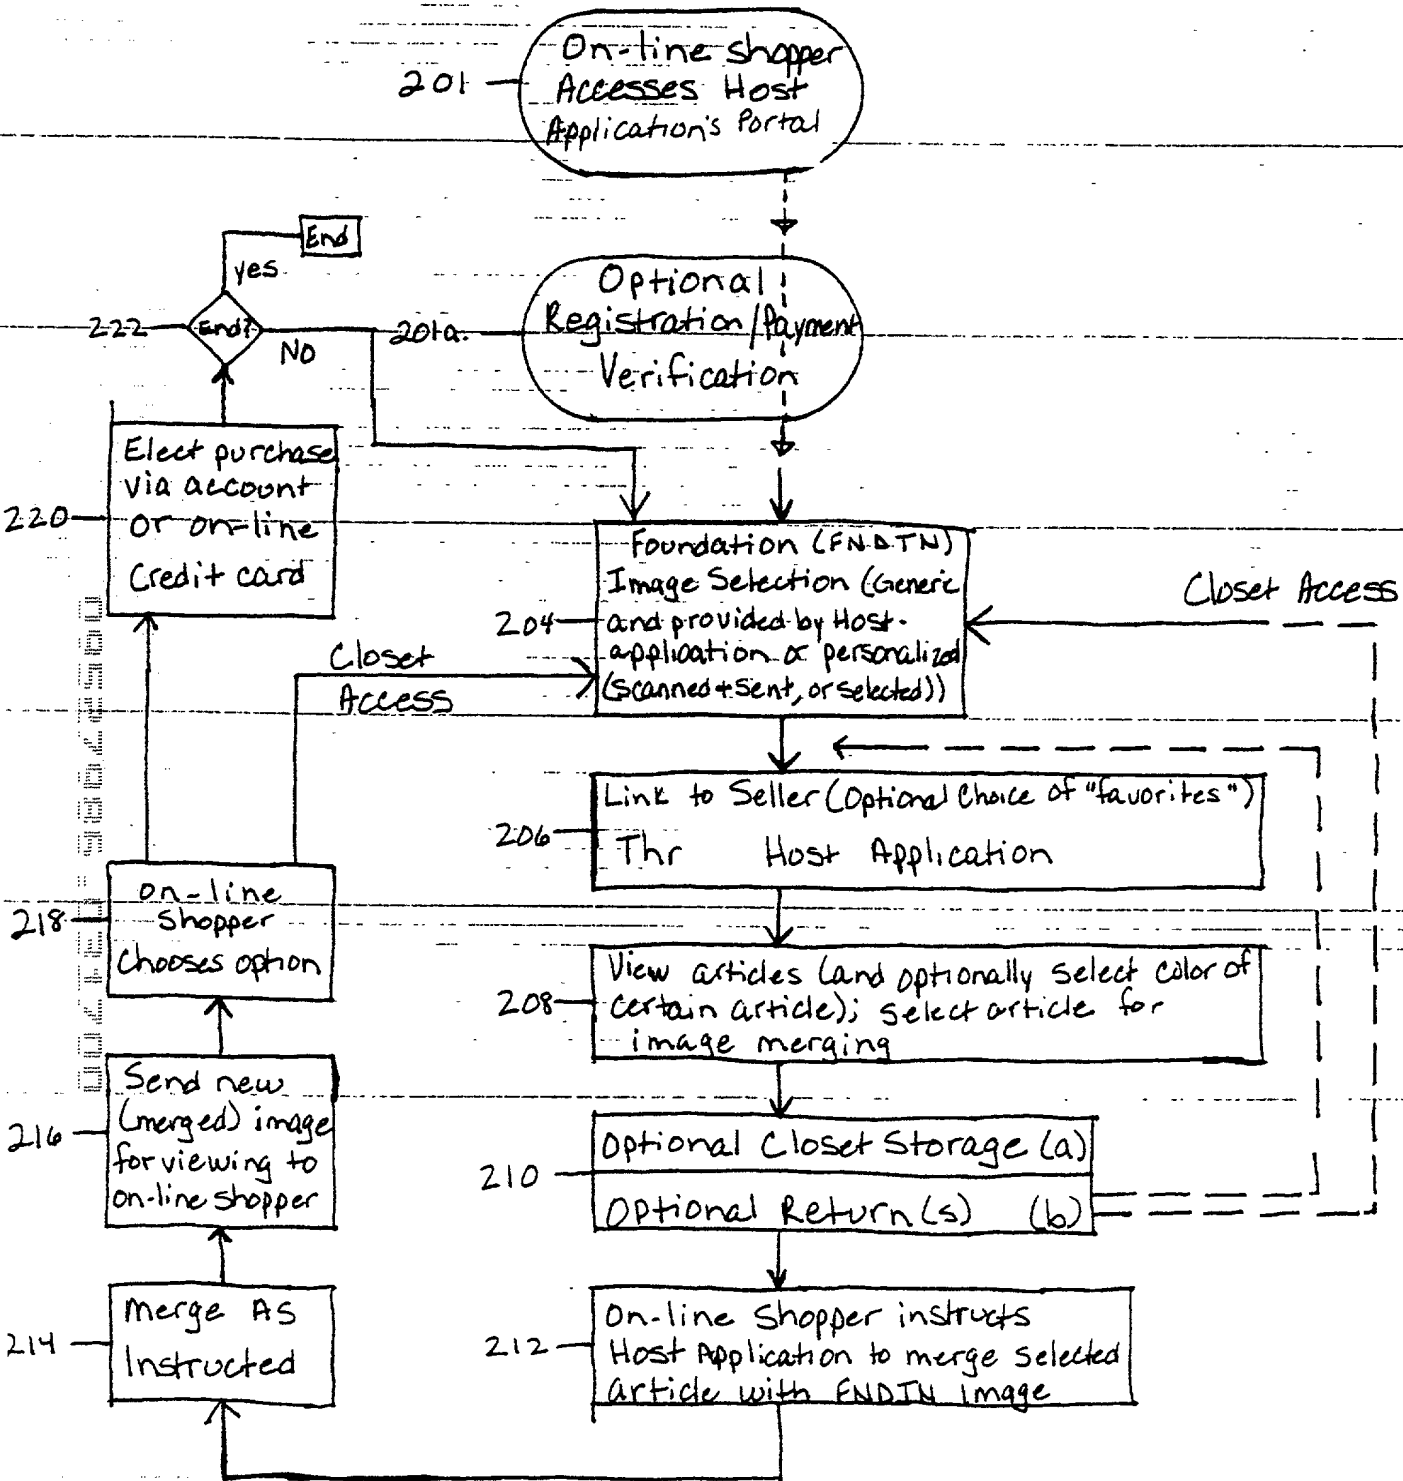 On-line shopper
Accesses Host
Application's Portal
201
End
yes
222
End?
No
201a.
Optional
Registration/Payment
Verification
220
Elect purchase
via account
or on-line
Credit card
204
Foundation (FNDTN)
Image Selection (Generic
and provided by Host-
application or personalized
(scanned + sent, or selected))
Closet Access
Closet
Access
206
Link to Seller (Optional Choice of "favorites")
Thr Host Application
218
on-line
shopper
chooses option
208
View articles (and optionally select color of
certain article); select article for
image merging
216
Send new
(merged) image
for viewing to
on-line shopper
210
Optional Closet Storage (a)
Optional Return(s) (b)
214
Merge As
Instructed
212
On-line Shopper instructs
Host Application to merge selected
article with FNDTN Image